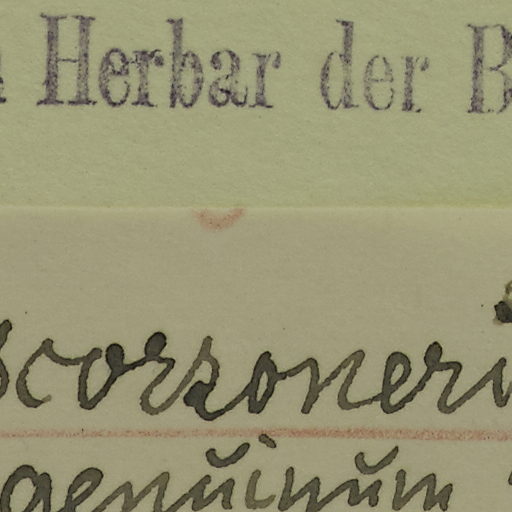 Herbar der B
scorzoneri
genuinum